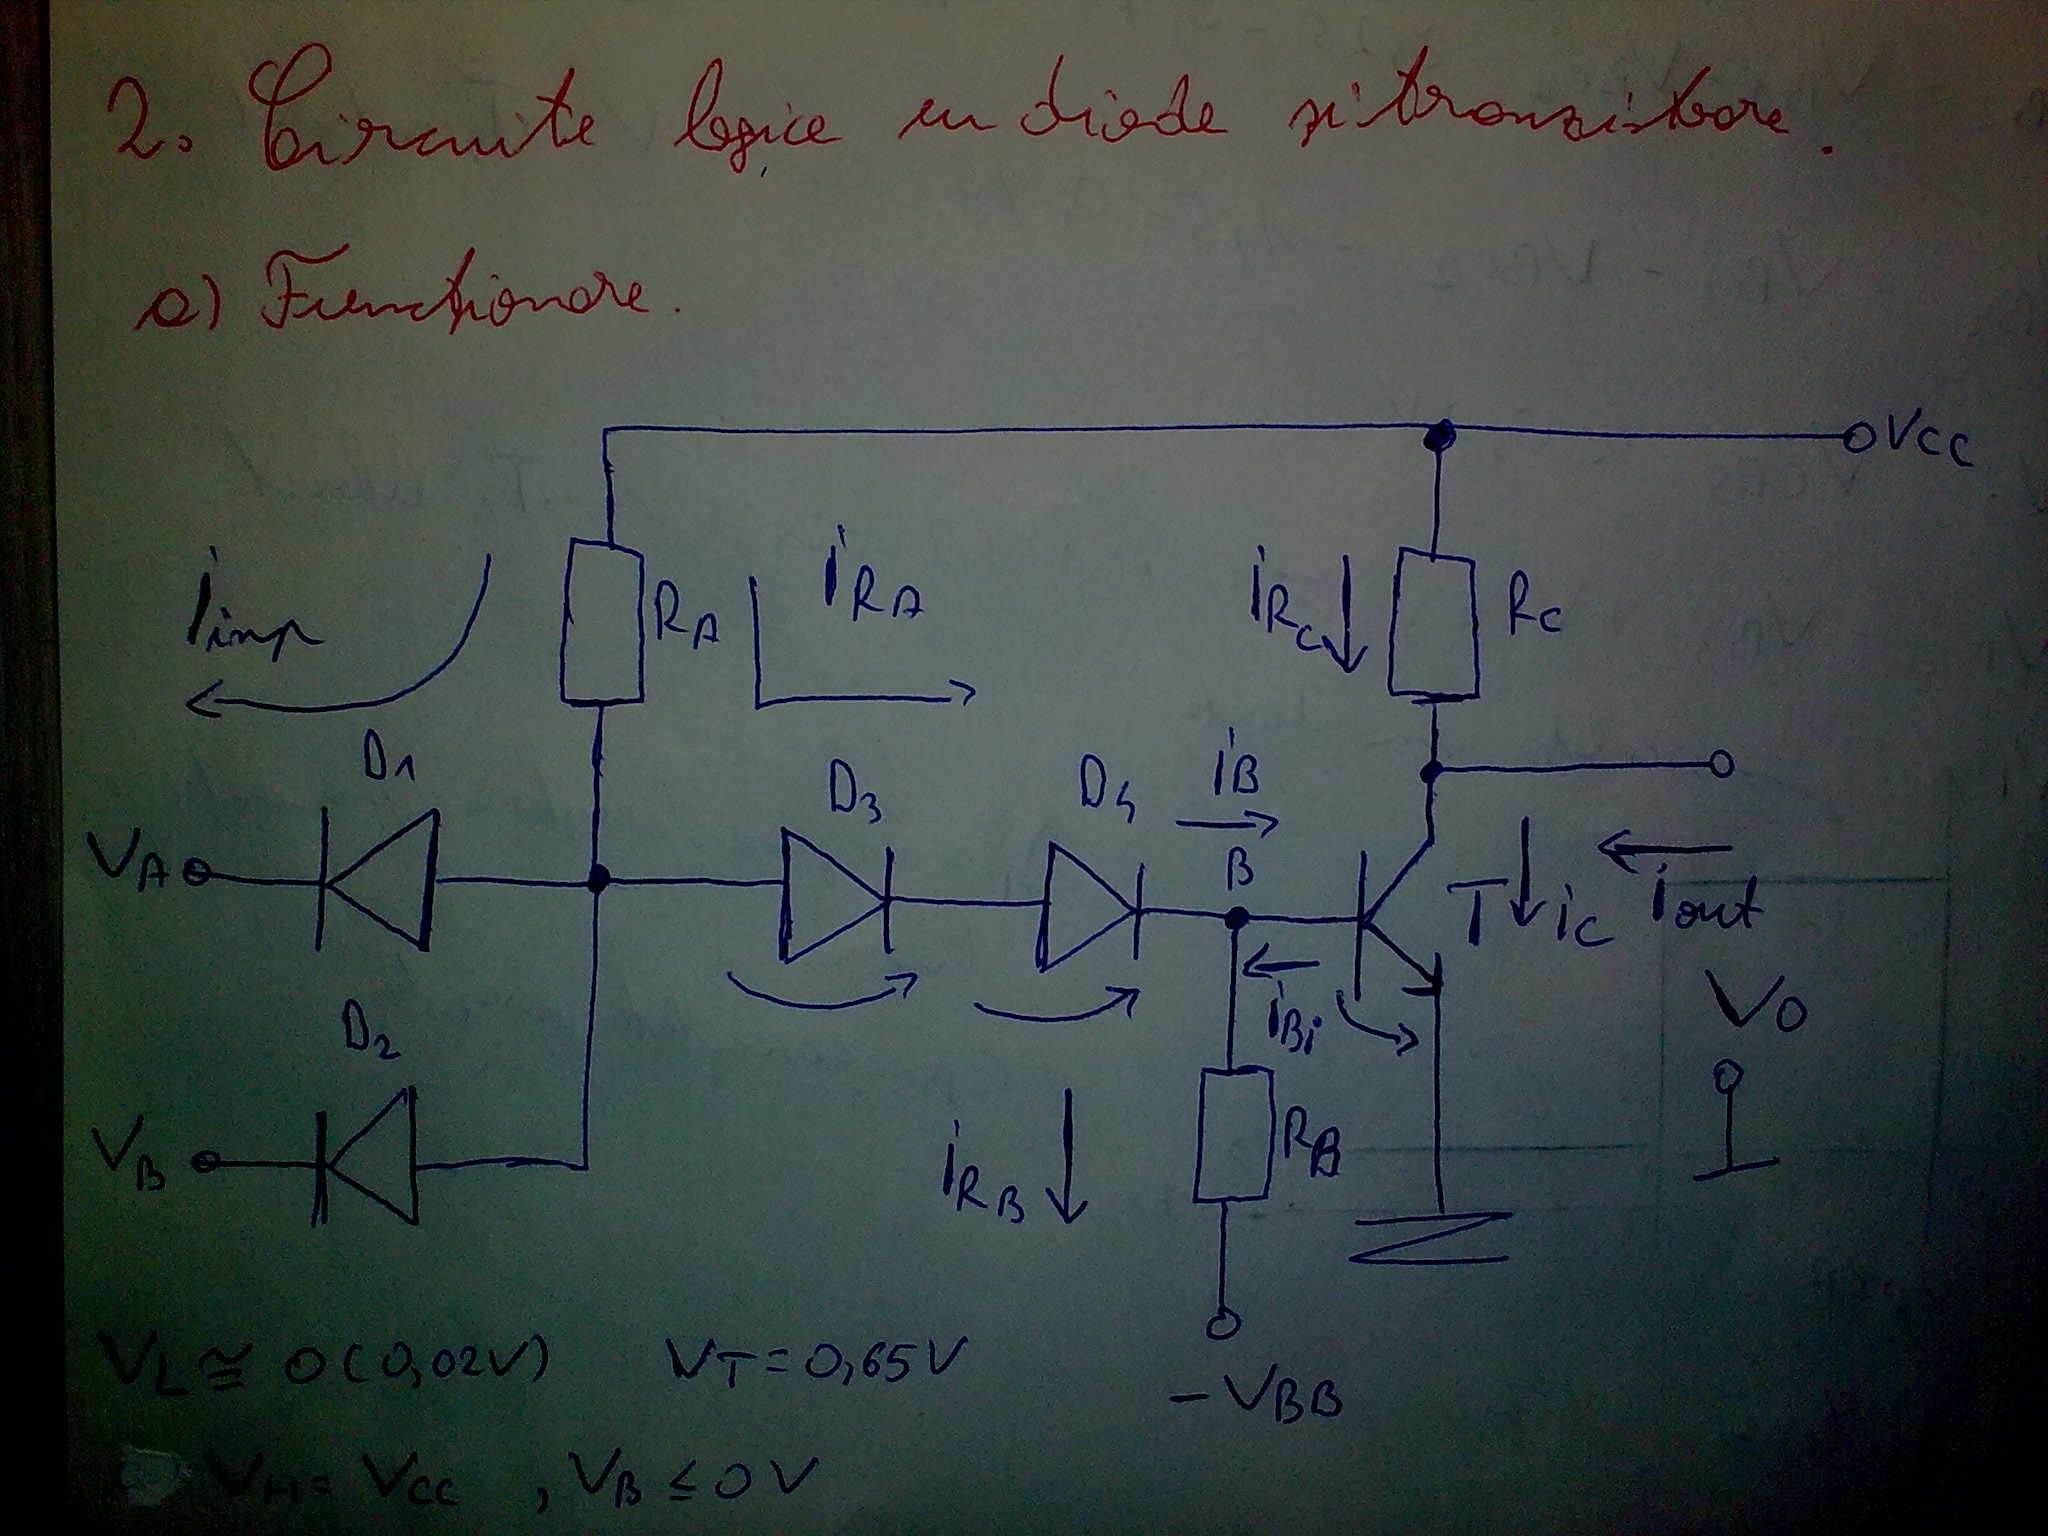 2. Circuite logice cu diode și tranzistoare.
a) Funcționare.
VCC
iinp
RA
iRA
iRC
RC
D1
D3
D4
iB
VA
B
T
iC
iout
iBi
VO
D2
VB
iRB
RB
VL ≅ 0 (0,02V) VT = 0,65V
-VBB
VH = VCC , VB ≤ 0V